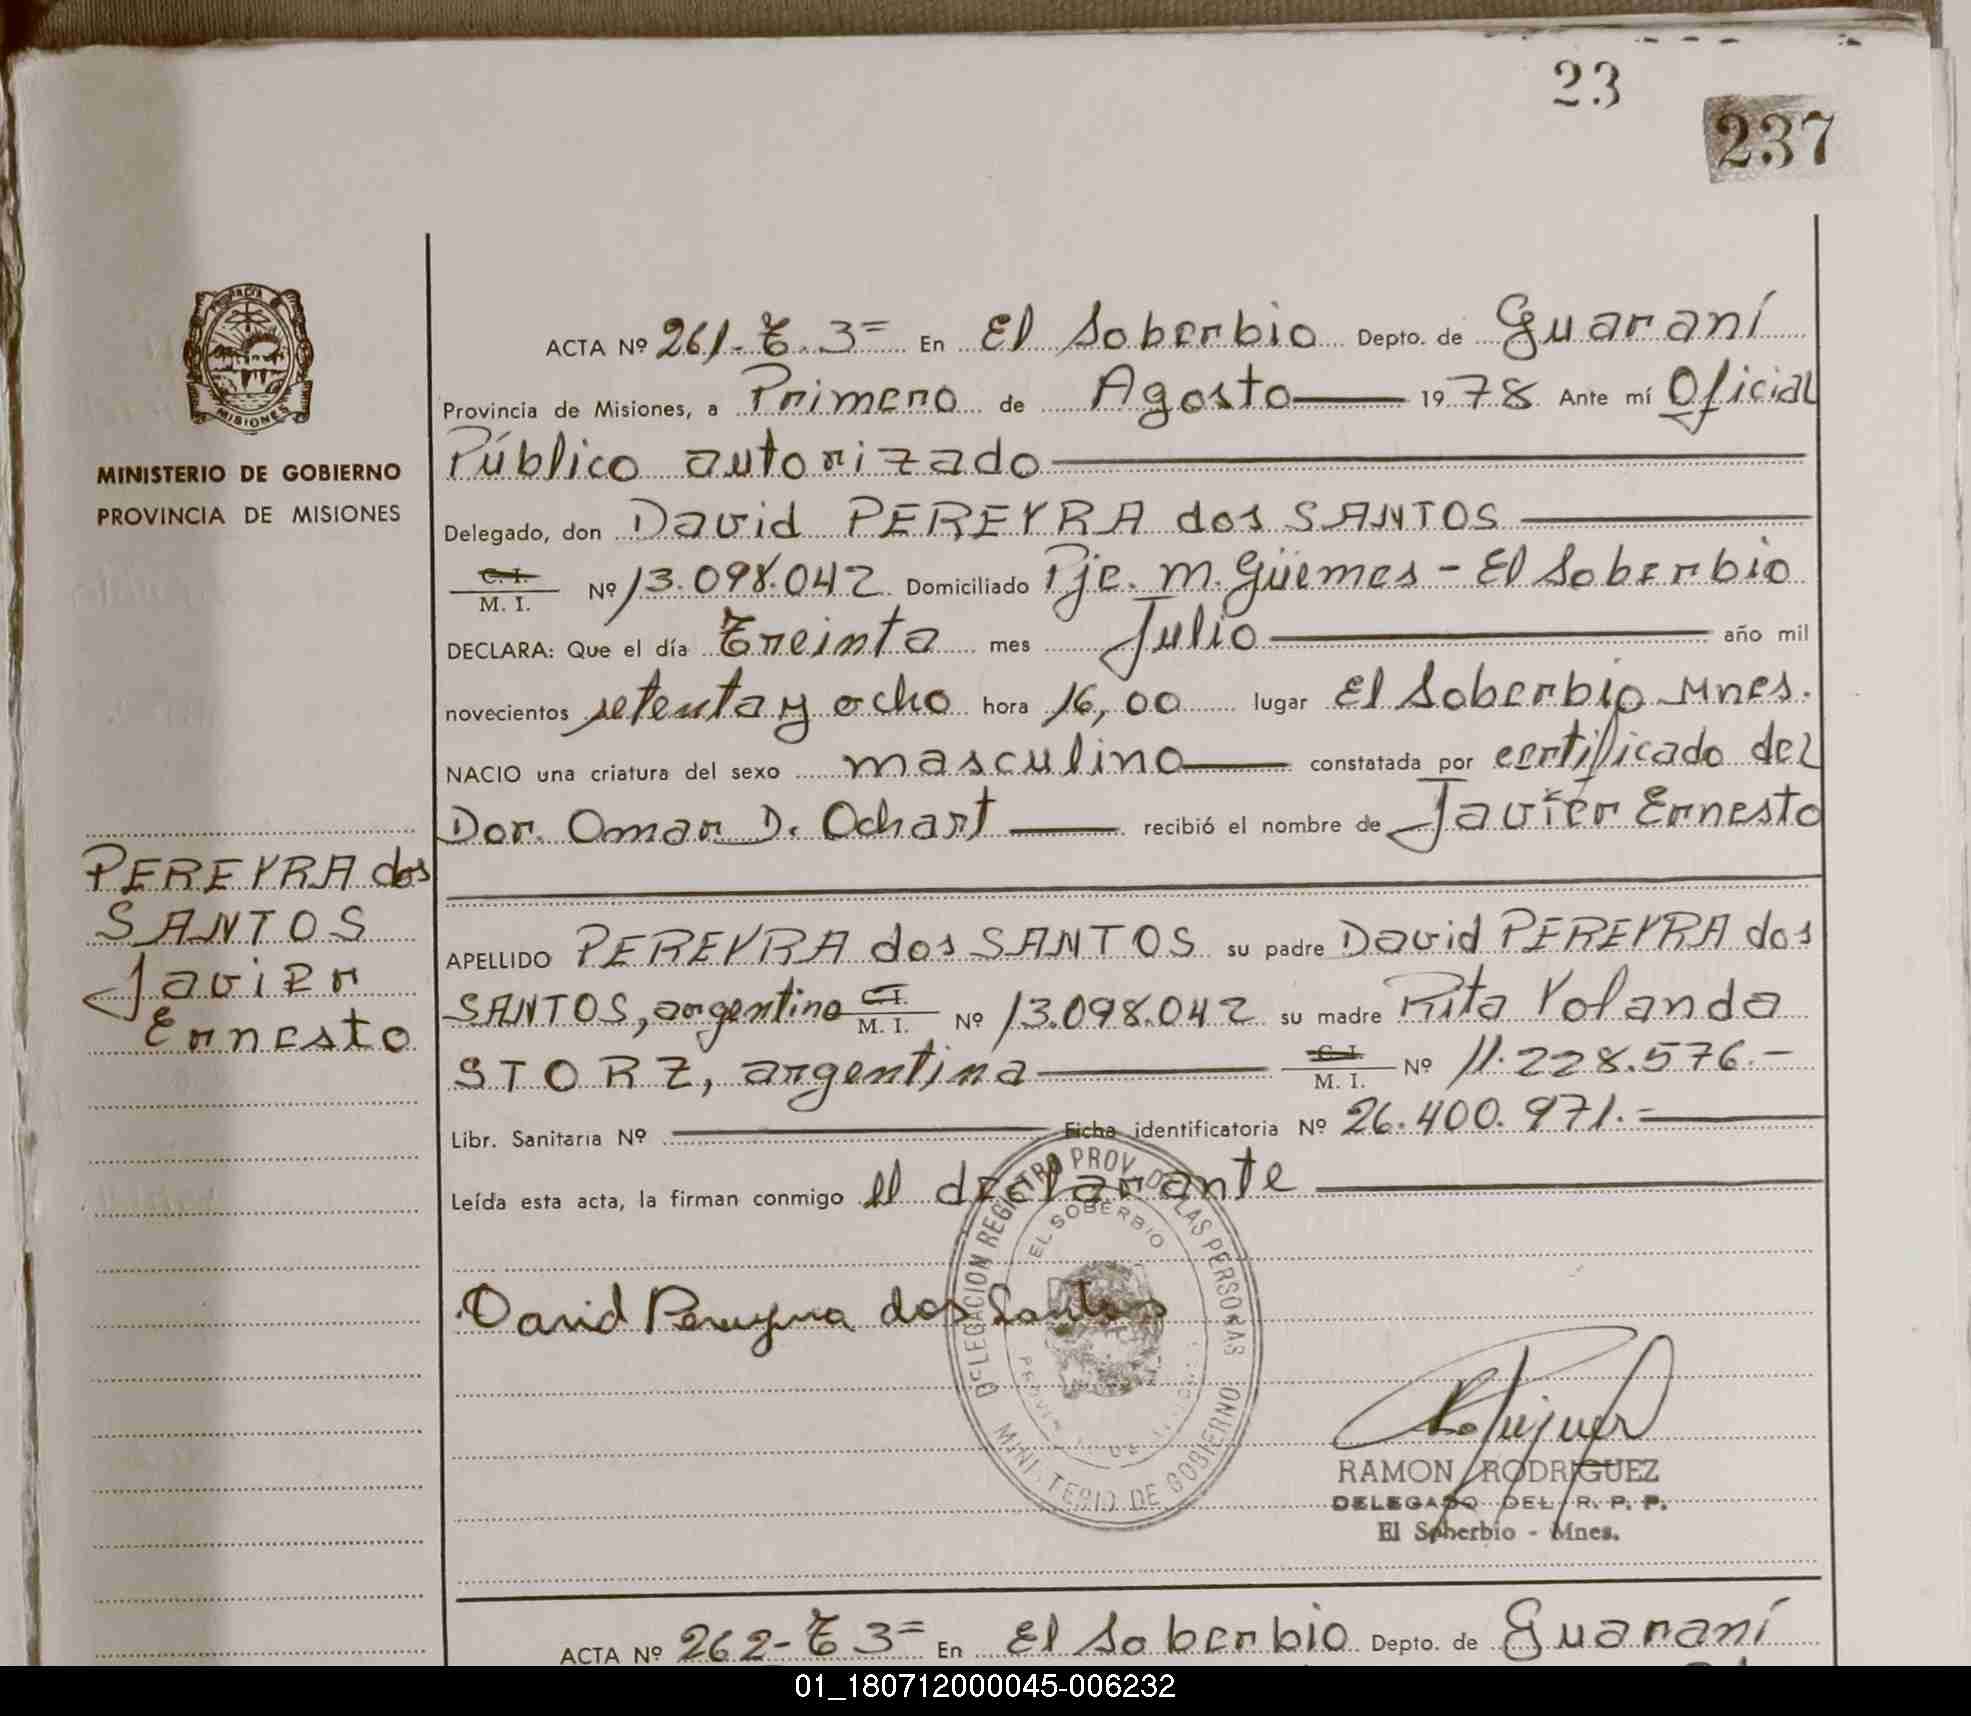 23
237
MISIONES
MINISTERIO DE GOBIERNO
PROVINCIA DE MISIONES
PEREYRA dos
SANTOS
Javier
Ernesto
ACTA Nº 261-T.3= En El Soberbio Depto. de Guaraní
Provincia de Misiones, a Primero de Agosto 1978 Ante mí Oficial
Público autorizado
Delegado, don David PEREYRA dos SANTOS
C. I.
M. I. Nº 13.098.042 Domiciliado Pje. M. Güemes - El Soberbio
DECLARA: Que el día Treinta mes Julio año mil
novecientos setenta y ocho hora 16,00 lugar El Soberbio Mnes.
NACIO una criatura del sexo masculino constatada por certificado del
Dor. Omar D. Ochart recibió el nombre de Javier Ernesto
APELLIDO PEREYRA dos SANTOS su padre David PEREYRA dos
SANTOS, argentino C.I.
M. I. Nº 13.098.042 su madre Rita Yolanda
STORZ, argentina C. I.
M. I. Nº 11.228.576.-
Libr. Sanitaria Nº Ficha identificatoria Nº 26.400.971.=
Leída esta acta, la firman conmigo el declarante
DELEGACION REGISTRO PROV. DE LAS PERSONAS
EL SOBERBIO
MINISTERIO DE GOBIERNO
David Pereyra dos Santos
RAMON RODRIGUEZ
DELEGADO DEL R. P. P.
El Soberbio - Mnes.
ACTA Nº 262-T 3= En El Soberbio Depto. de Guaraní
01_180712000045-006232